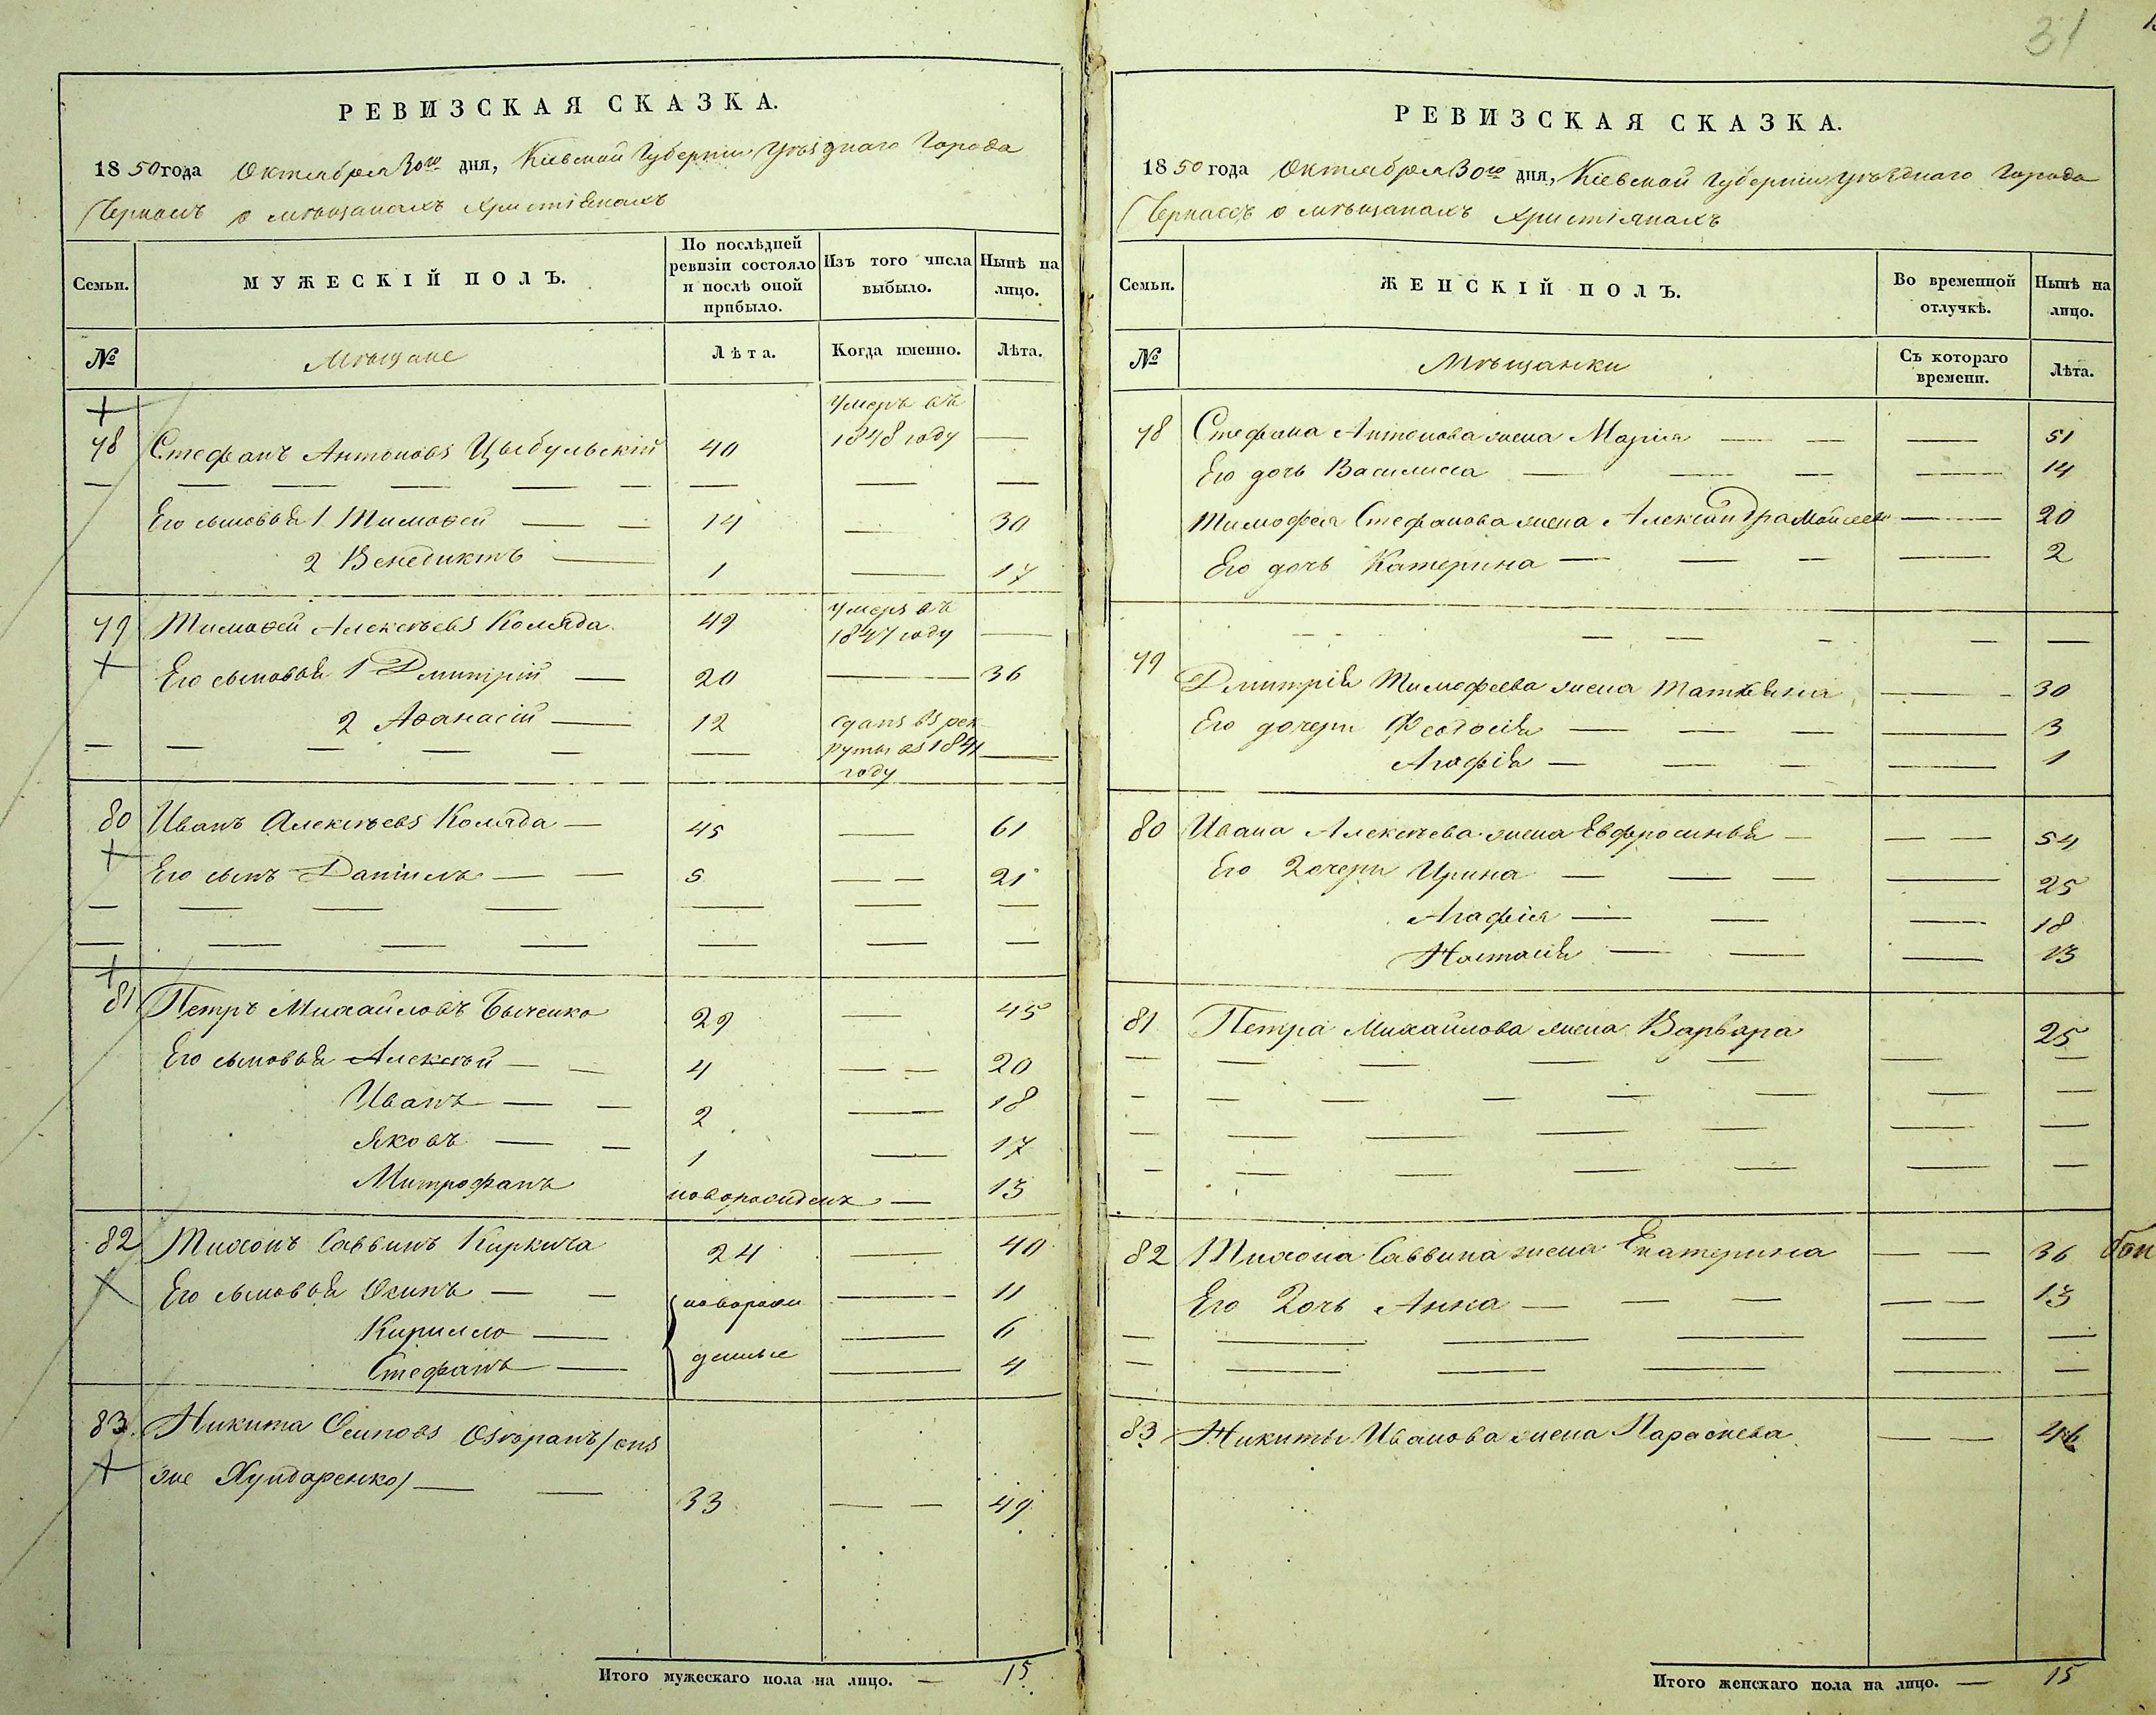 31
РЕВИЗСКАЯ СКАЗКА.
1850 года Октября 30го дня, Кіевской Губерніи Уѣзднаго Города
Черкасъ о мѣщанахъ христіянахъ
Семьи.
МУЖЕСКІЙ ПОЛЪ.
По послѣдней ревизіи состояло и послѣ оной прибыло.
Изъ того числа выбыло.
Нынѣ на лицо.
№
Мѣщане
Лѣта.
Когда именно.
Лѣта.
78 Стефанъ Антоновъ Цыбульскій 40 Умеръ въ 1848 году —
Его сыновья 1 Тимоѳей — — 14 — 30
2 Венедиктъ — 1 — 17
79 Тимоѳей Алексѣевъ Коляда 49 Умеръ въ 1847 году —
Его сыновья 1 Дмитрій — 20 — 36
2 Аѳанасій — 12 сданъ въ рекруты въ 1841 году —
80 Иванъ Алексѣевъ Коляда — 45 — 61
Его сынъ Даніилъ — — 5 — — 21
81 Петръ Михайловъ Быченко 29 — 45
Его сыновья Алексѣй — — 4 — — 20
Иванъ — — 2 — 18
Яковъ — — 1 — 17
Митрофанъ новорожденъ — 13
82 Тихонъ Саввинъ Киркича 24 — 40
Его сыновья Осипъ — — новорож — 11
Кирилло — — 6
Стефанъ — денные — 4
83 Никита Осиповъ /онъ
же Хундаренко/ — — 33 — — 49
Итого мужескаго пола на лицо. — 15
РЕВИЗСКАЯ СКАЗКА.
1850 года Октября 30го дня, Кіевской Губерніи Уѣзднаго Города
Черкасъ о мѣщанахъ христіянахъ
Семьи.
ЖЕНСКІЙ ПОЛЪ.
Во временной отлучкѣ.
Нынѣ на лицо.
№
Мѣщанки
Съ котораго времени.
Лѣта.
78 Стефана Антонова жена Марія — — — 51
Его дочь Василиса — — — — 14
Тимофея Стефанова жена Александра Моисеева — 20
Его дочь Катерина — — — — 2
79 Дмитрія Тимофеева жена Татьяна — - 30
Его дочери Феодосія — — — — 3
Агафія — — — — 1
80 Ивана Алексѣева жена Евфросинья — — — 54
Его дочери Ирина — — — — 25
Агафія — — — 18
Настасія — — — 13
81 Петра Михайлова жена Варвара 25
82 Тихона Саввина жена Екатерина — — 36
Его дочь Анна — — — — — 13
83 Никиты Иванова жена Параскева — — 46
Итого женскаго пола на лицо. — 15